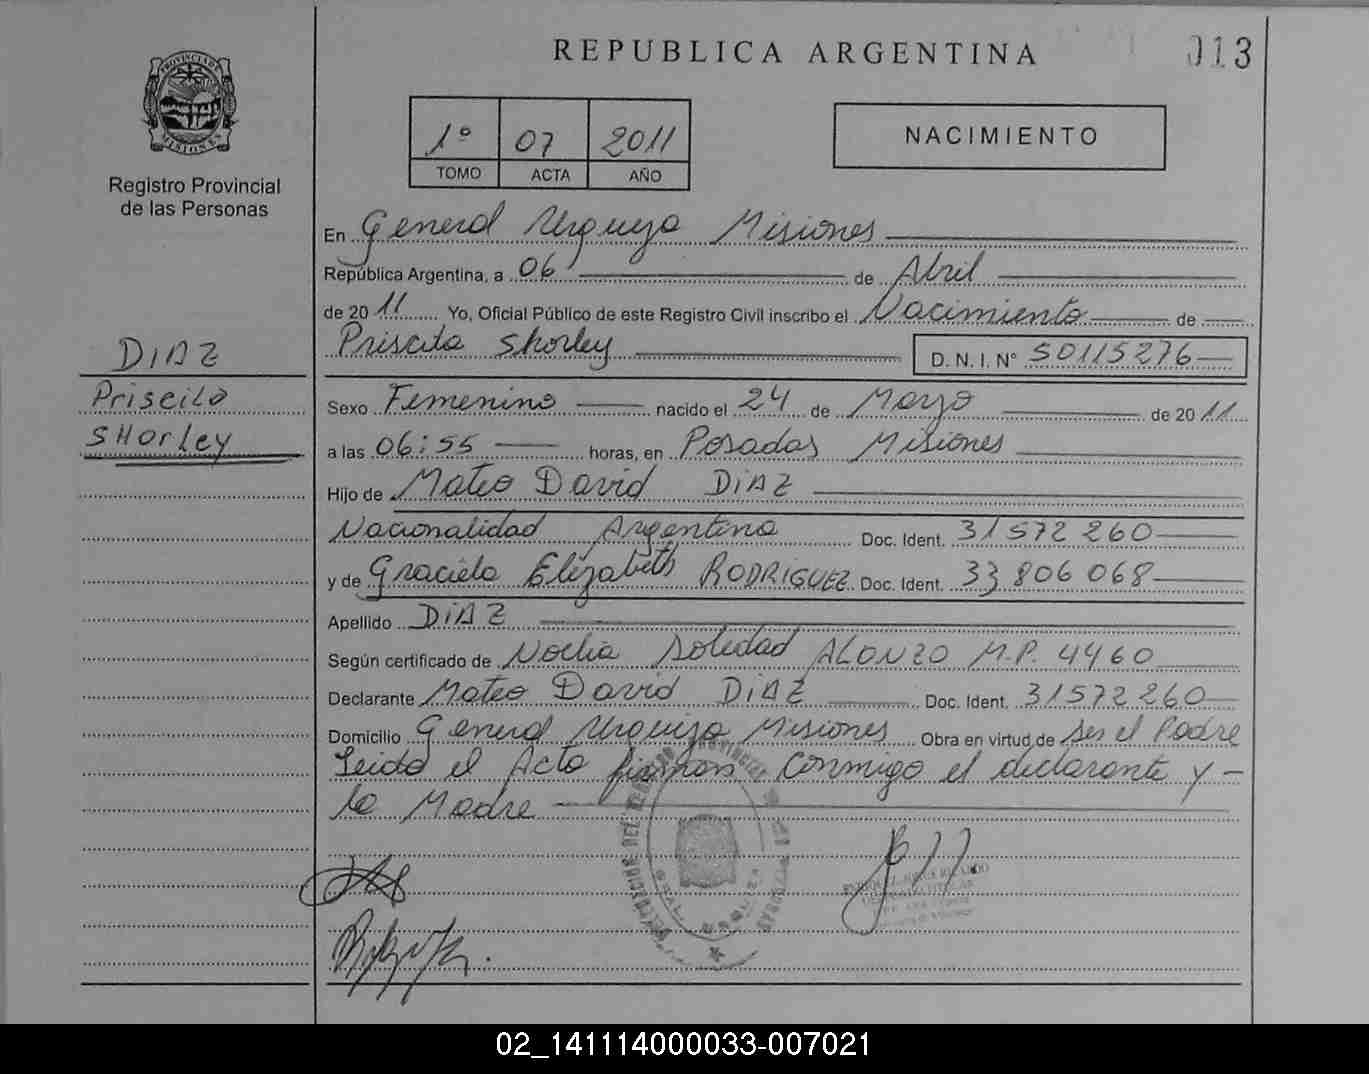 REPUBLICA ARGENTINA
013
PROVINCIA DE MISIONES
Registro Provincial
de las Personas
1º 07 2011
TOMO ACTA AÑO
NACIMIENTO
En General Urquiza Misiones
República Argentina, a 06 de Abril
de 2011 Yo, Oficial Público de este Registro Civil inscribo el Nacimiento de
Priscila Shorley D. N. I. Nº 50115276
DIAZ
Priscila
SHorley
Sexo Femenino nacido el 24 de Marzo de 2011
a las 06:55 horas, en Posadas Misiones
Hijo de Mateo David DIAZ
Nacionalidad Argentina Doc. Ident. 31572260
y de Graciela Elizabeth RODRIGUEZ Doc. Ident. 33806068
Apellido DIAZ
Según certificado de Noelia Soledad ALONZO M.P. 4460
Declarante Mateo David DIAZ Doc. Ident. 31572260
Domicilio General Urquiza Misiones Obra en virtud de Ser el Padre
Leida el Acta firman conmigo el declarante y
la Madre
02_141114000033-007021